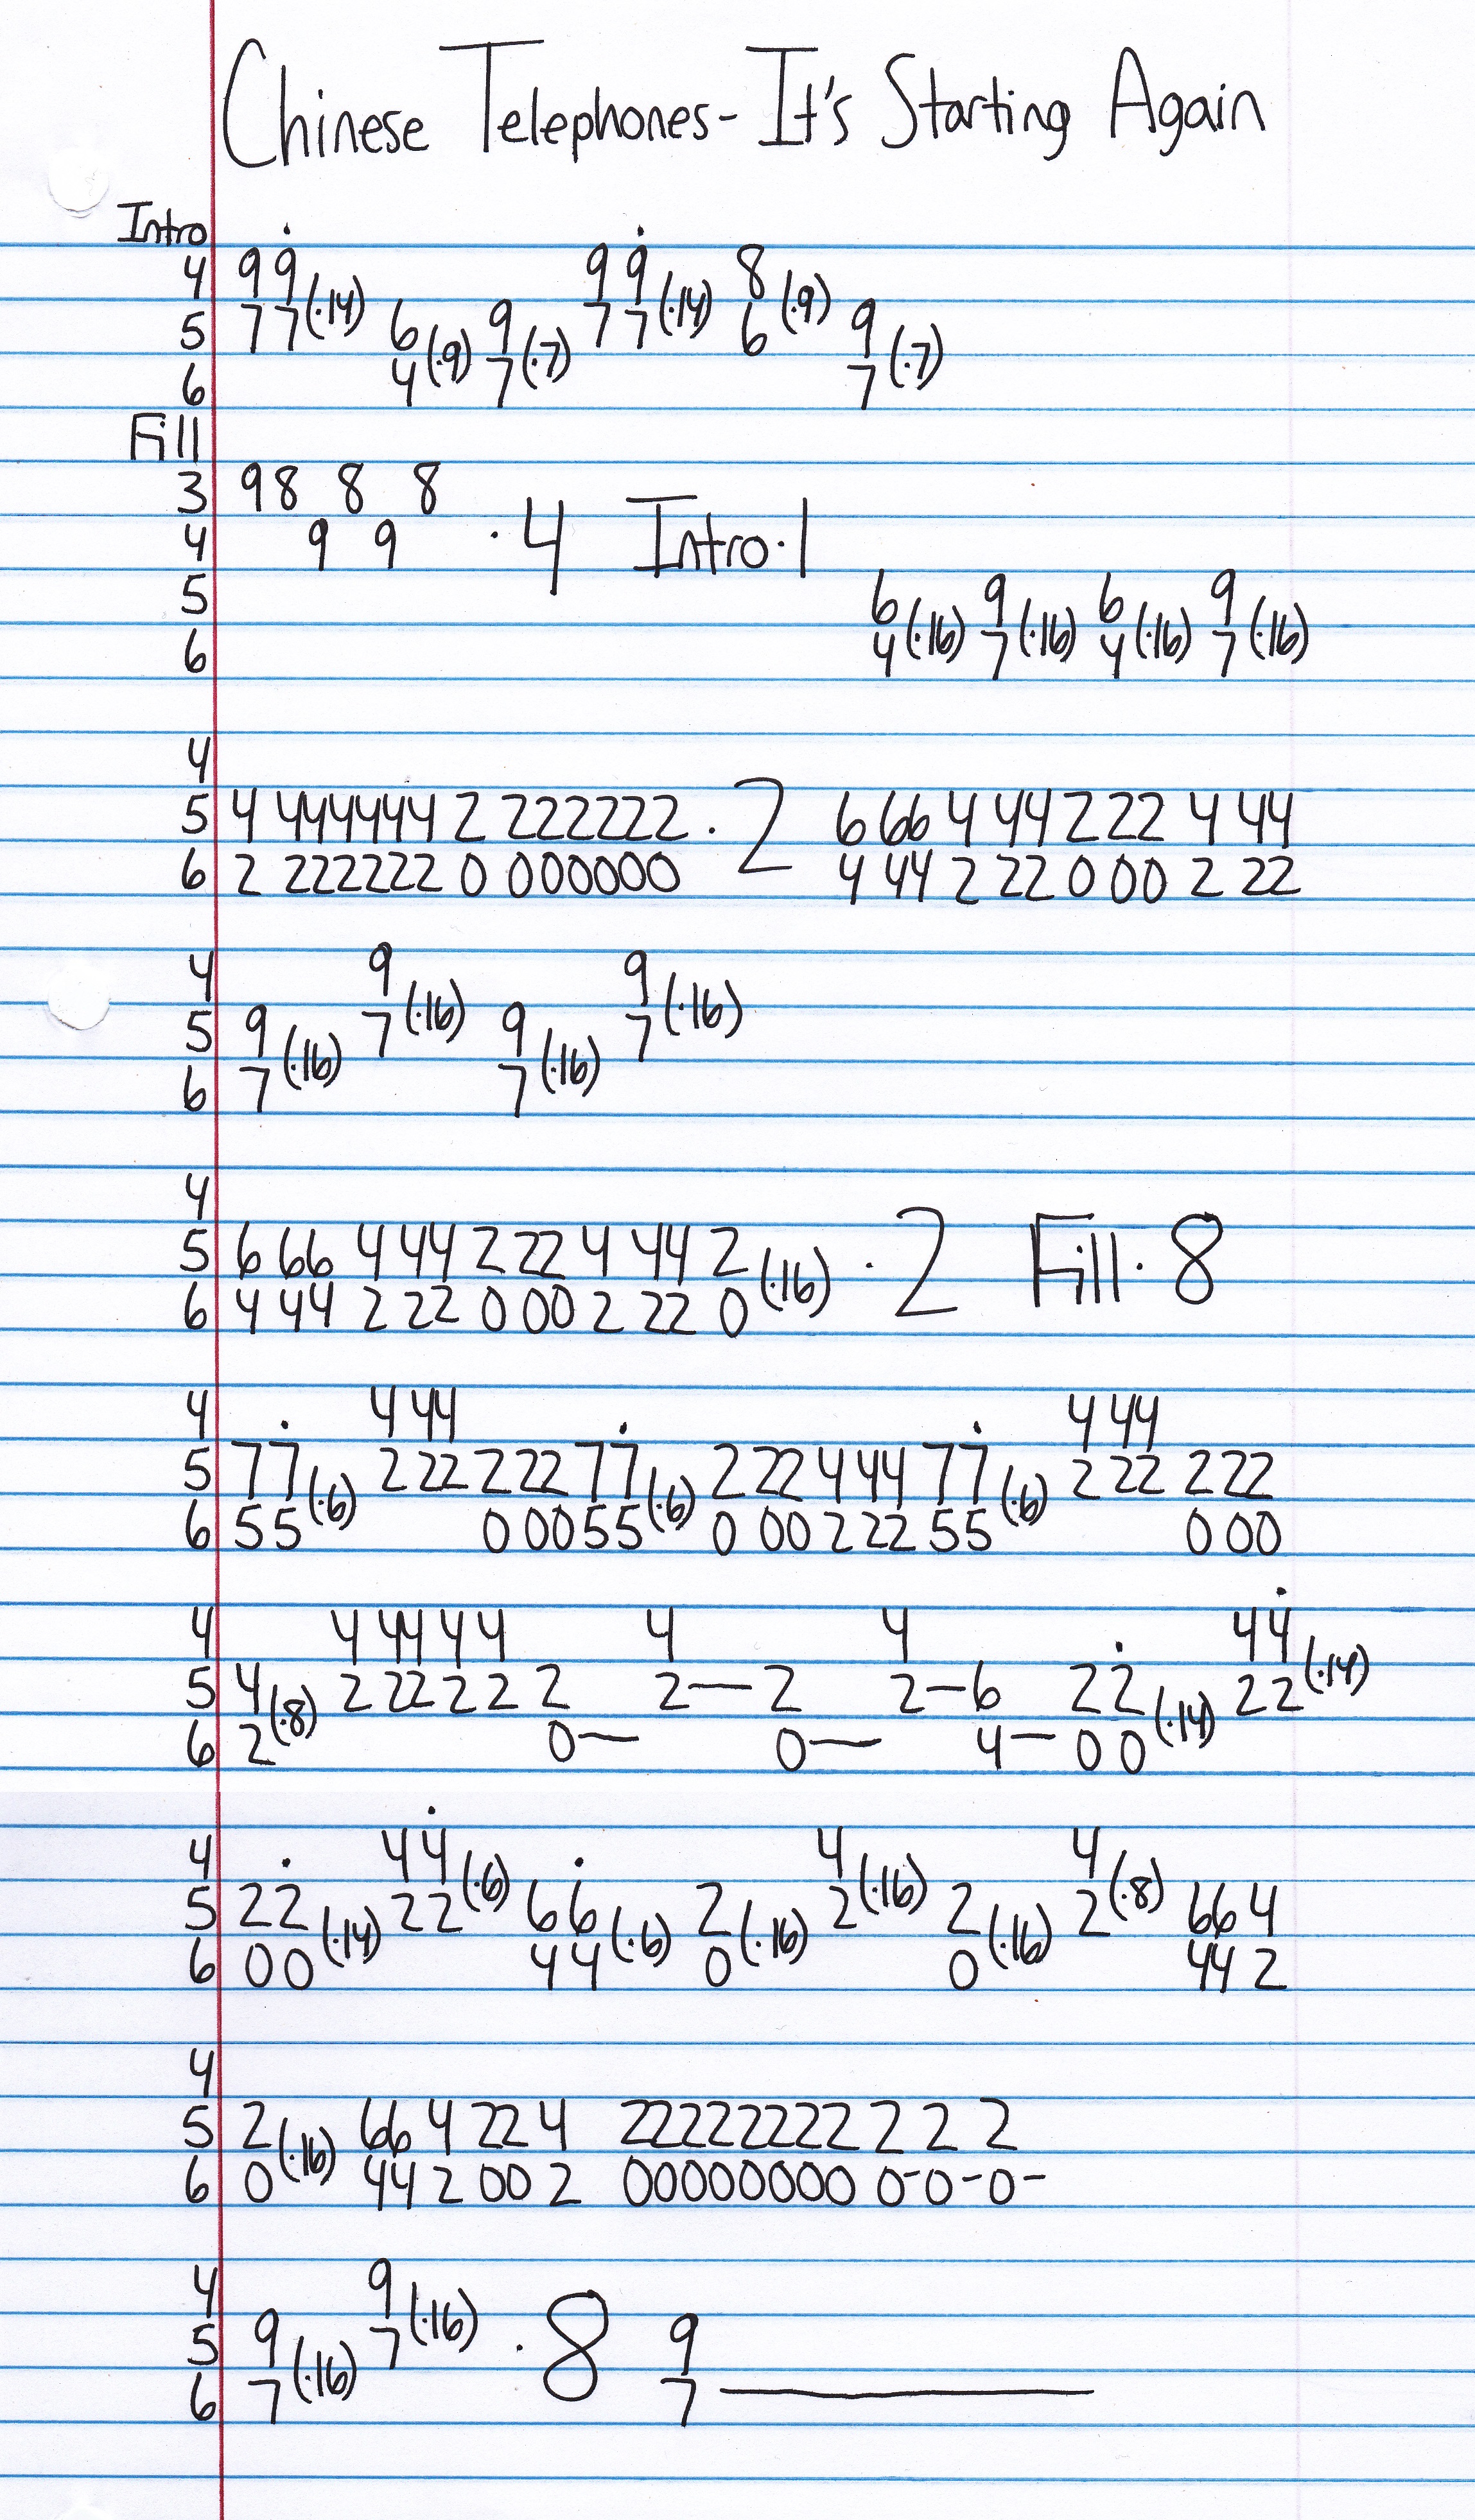 Chinese Telephones - It's Starting Again
Intro
4 9 9̇ 9 9̇ 8
5 7 7(·14) 6 9 7 7(·14) 6(·9) 9
6 4(·9) 7(·7) 7(·7)
Fill
3 9 8 8 8
4 9 9 ·4 Intro·1
5 6 9 6 9
6 4(·16) 7(·16) 4(·16) 7(·16)
4
5 4 444444 2 222222 ·2 6 66 4 44 2 22 4 44
6 2 222222 0 000000 4 44 2 22 0 00 2 22
4 9 9
5 9 7(·16) 9 7(·16)
6 7(·16) 7(·16)
4
5 6 66 4 44 2 22 4 44 2
6 4 44 2 22 0 00 2 22 0(·16) ·2 Fill·8
4 4 44 4 44
5 7 7̇ 2 22 2 22 7 7̇ 2 22 4 44 7 7̇ 2 22 2 22
6 5 5(·6) 0 00 5 5(·6) 0 00 2 22 5 5(·6) 0 00
4 4 44 4 4 4 4 4 4̇
5 4 2 22 2 2 2 2— 2 2–6 2 2̇ 2 2(·14)
6 2(·8) 0— 0— 4— 0 0(·14)
4 4 4̇ 4 4
5 2 2̇ 2 2(·6) 6 6̇ 2 2(·16) 2 2(·8) 66 4
6 0 0(·14) 4 4(·6) 0(·16) 0(·16) 44 2
4
5 2 66 4 22 4 22222222 2 2 2
6 0(·16) 44 2 00 2 00000000 0-0-0-
4 9
5 9 7(·16) ·8 9
6 7(·16) 7———